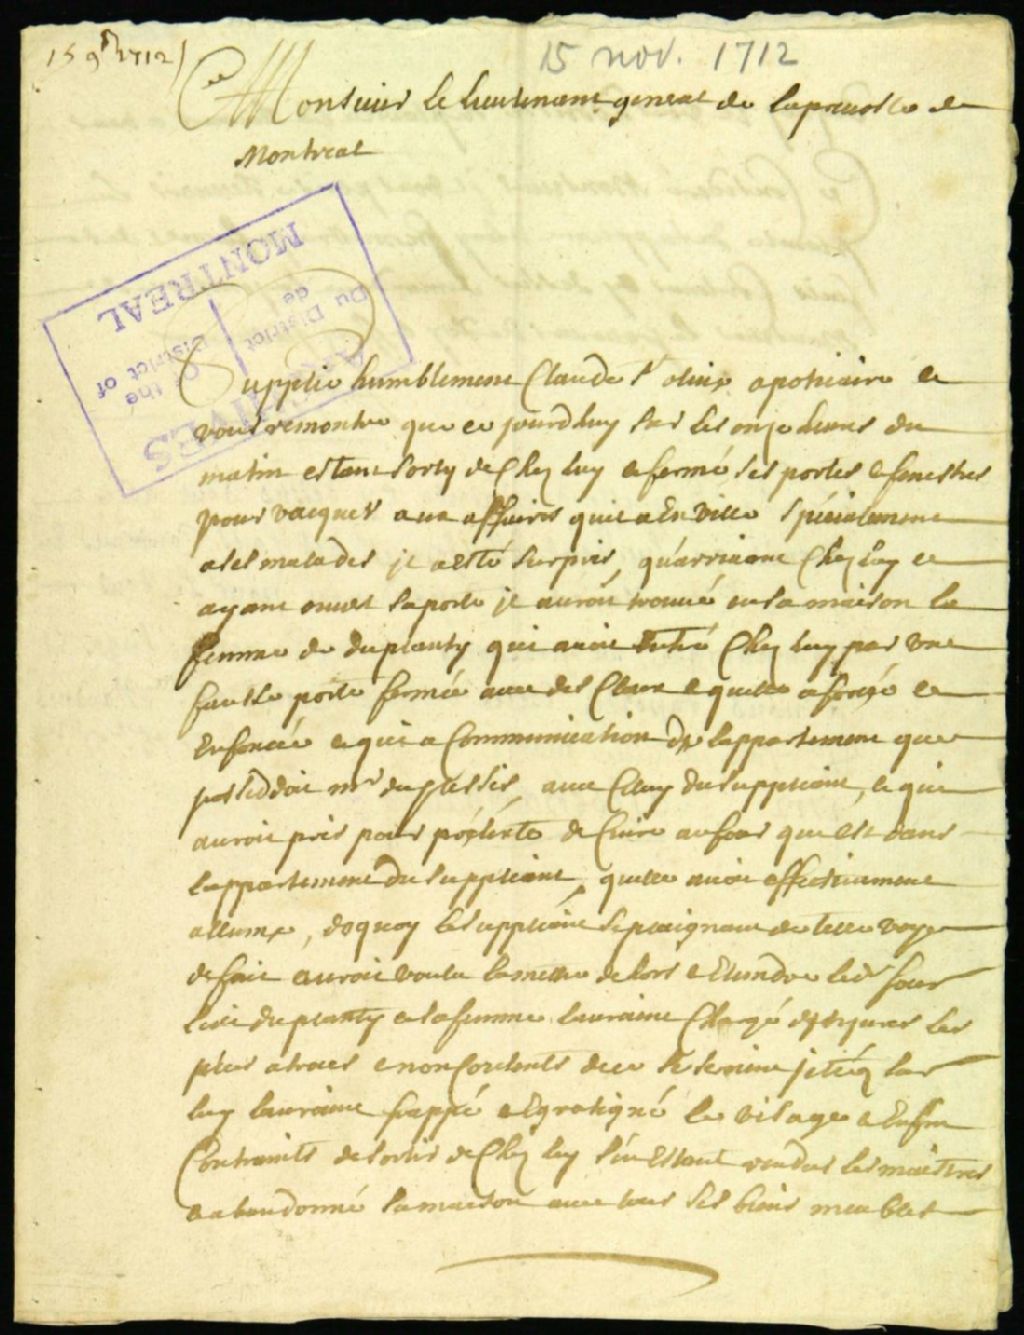 15 9bre 1712
15 nov. 1712
A Monsieur Le Lieutenant general de la prevosté de
Montreal
ARCHIVES
Du District de
of the District of
MONTREAL
Supplie humblement Claude St olive apoticaire et
vous remontre que ce jourdhuy sur les onze heures du
matin estant sorty de Chez luy et fermé ses portes et fenestres
pour vacquer aux affaires quil a En ville spécialement
a ses malades il a esté surpris, qu'arrivant Chez luy et
ayant ouvert sa porte il auroit trouvé en sa maison la
femme de duplanty qui avoit Entré Chez luy par une
fausse porte fermée avec des Cloux et quelle a forcé et
Enfoncée et qui a Communication de lappartement que
possedoit mr duplessis avec Celuy du suppliant, et qui
auroit pris pour prétexte de Cuire au four qui est dans
lappartement du suppliant, quelle avoit effectivement
allumé, de quoy le suppliant se plaignant de telle voye
de fait auroit voulu la mettre dehors et Etindre led. four
led. duplanty et sa femme lauroient Chargé dinjures les
plus atroces et non Contents de ce se seroient jettéz sur
luy lauroient frappé et Egratigné le visage et Enfin
Contraints de sortir de Chez luy s'en Estant rendus les maistres
et abandonné sa maison avec tous ses biens meubles